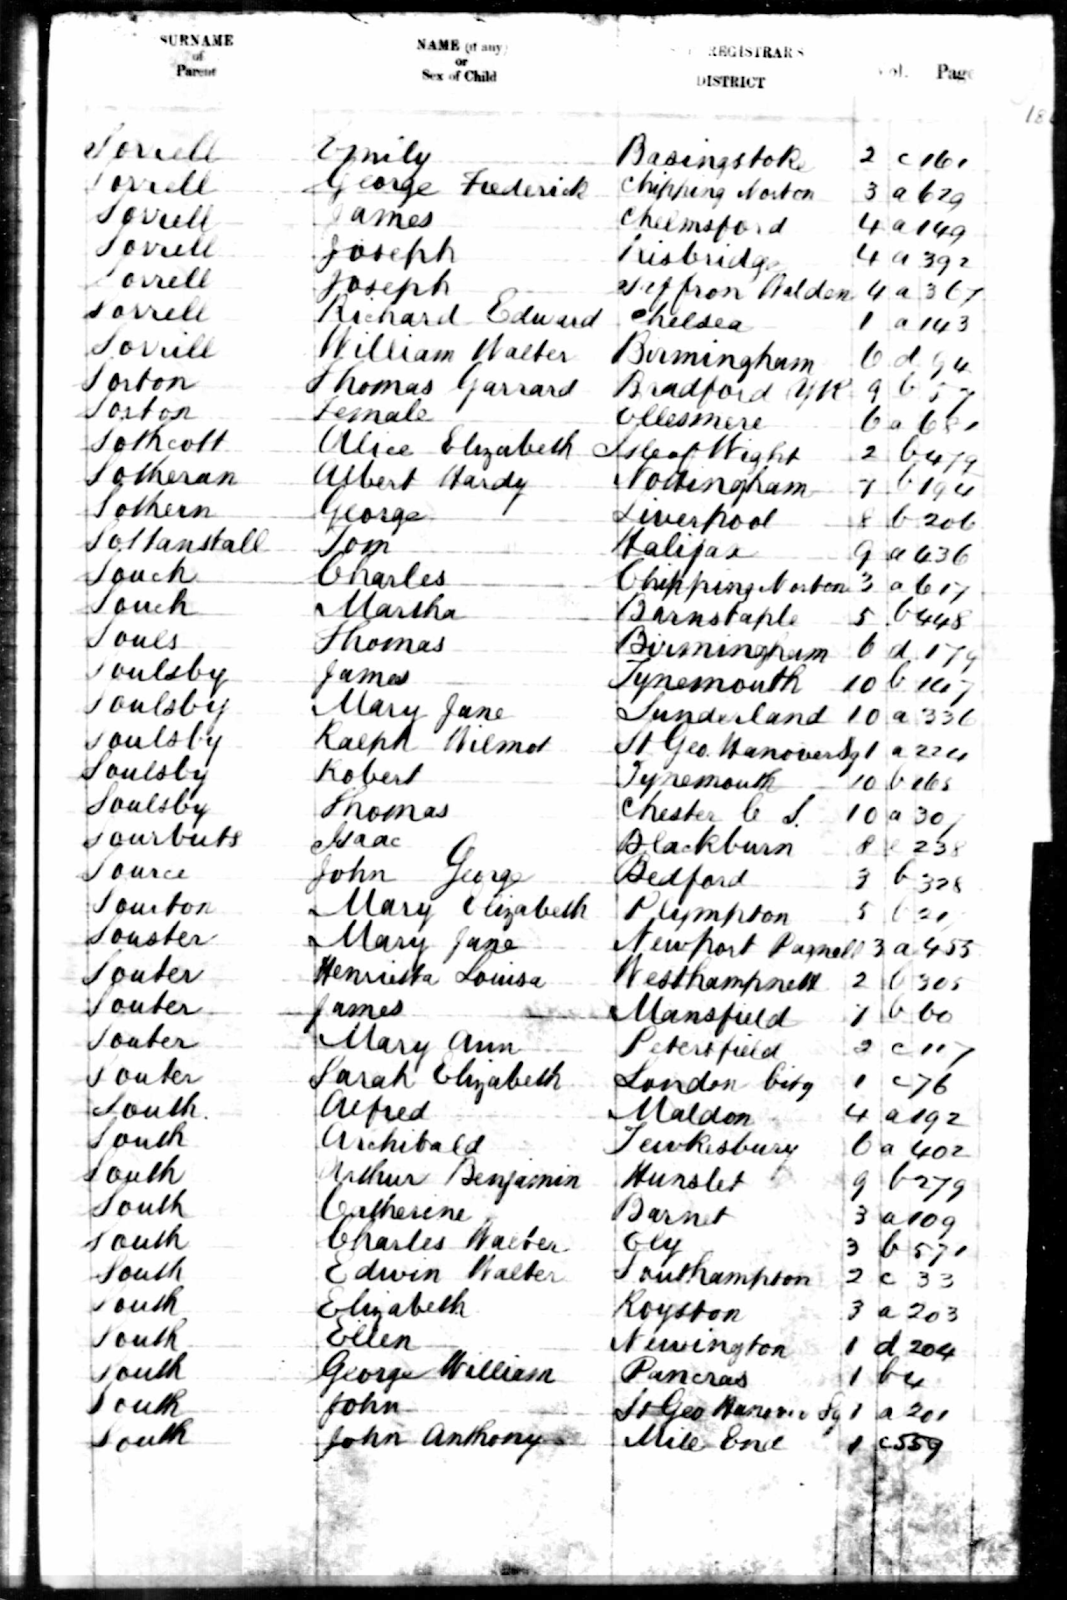 SURNAME of Parent NAME (if any) or Sex of Child REGISTRARS DISTRICT Vol. Page
Sorrell Emily Basingstoke 2 c 161
Sorrell George Frederick Chipping Norton 3 a 629
Sorrell James Chelmsford 4 a 149
Sorrell Joseph Risbridge 4 a 392
Sorrell Joseph Saffron Walden 4 a 367
Sorrell Richard Edward Chelsea 1 a 143
Sorrill William Walter Birmingham 6 d 94
Sorton Thomas Garrard Bradford Yk 9 b 57
Sorton Female Ellesmere 6 a 681
Sothcott Alice Elizabeth Isle of Wight 2 b 479
Sotheran Albert Hardy Nottingham 7 b 194
Sothern George Liverpool 8 b 206
Sottanstall Tom Halifax 9 a 436
Souch Charles Chipping Norton 3 a 617
Souch Martha Barnstaple 5 b 448
Soues Thomas Birmingham 6 d 179
Soulsby James Tynemouth 10 b 147
Soulsby Mary Jane Sunderland 10 a 336
Soulsby Ralph Wilmot St Geo. Hanover Sq 1 a 224
Soulsby Robert Tynemouth 10 b 165
Soulsby Thomas Chester le S. 10 a 307
Sourbuts Isaac Blackburn 8 e 238
Source John George Bedford 3 b 328
Sourton Mary Elizabeth Plympton 5 b
Souster Mary Jane Newport Pagnell 3 a 453
Souter Henrietta Louisa Westhampnett 2 b 305
Souter James Mansfield 7 b 60
Souter Mary Ann Petersfield 2 c 117
Souter Sarah Elizabeth London City 1 c 76
South. Alfred Maldon 4 a 192
South Archibald Tewkesbury 6 a 402
South Arthur Benjamin Hunslet 9 b 279
South Catherine Barnet 3 a 109
South Charles Walter Ely 3 b 571
South Edwin Walter Southampton 2 c 33
South Elizabeth Royston 3 a 203
South Ellen Newington 1 d 204
South George William Pancras 1 b 4
South John St Geo Hanover Sq 1 a 201
South John Anthony Mile End 1 c 559